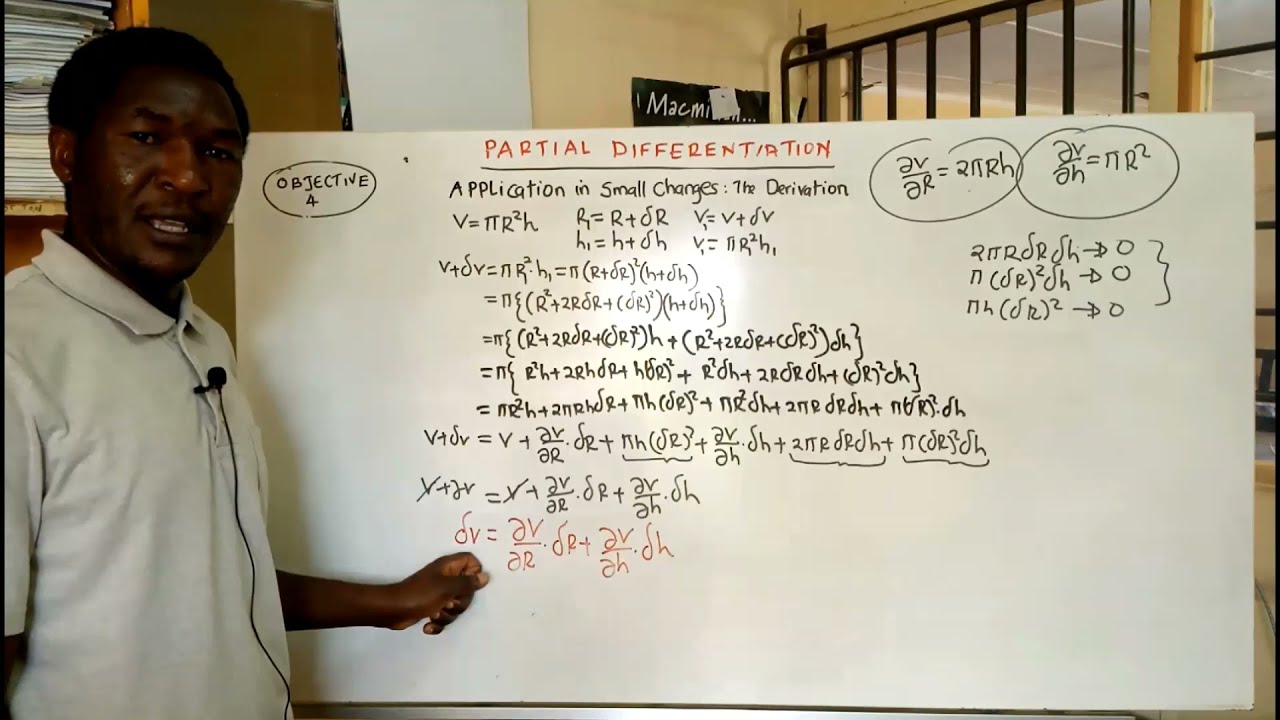 PARTIAL DIFFERENTIATION
OBJECTIVE
4
Application in Small Changes: The Derivation
V=πR²h R₁=R+δR V₁=V+δV
h₁=h+δh V₁=πR₁²h₁
V+δV=πR₁²·h₁=π(R+δR)²(h+δh)
=π{(R²+2RδR+(δR)²)(h+δh)}
=π{(R²+2RδR+(δR)²)h+(R²+2RδR+(δR)²)δh}
=π{R²h+2RhδR+h(δR)²+R²δh+2RδRδh+(δR)²δh}
=πR²h+2πRhδR+πh(δR)²+πR²δh+2πRδRδh+π(δR)²·δh
V+δV=V+∂V/∂R·δR+πh(δR)²+∂V/∂h·δh+2πRδRδh+π(δR)²δh
V+∂V=V+∂V/∂R·δR+∂V/∂h·δh
δV=∂V/∂R·δR+∂V/∂h·δh
∂V/∂R=2πRh ∂V/∂h=πR²
2πRδRδh→0
π(δR)²δh→0
πh(δR)²→0